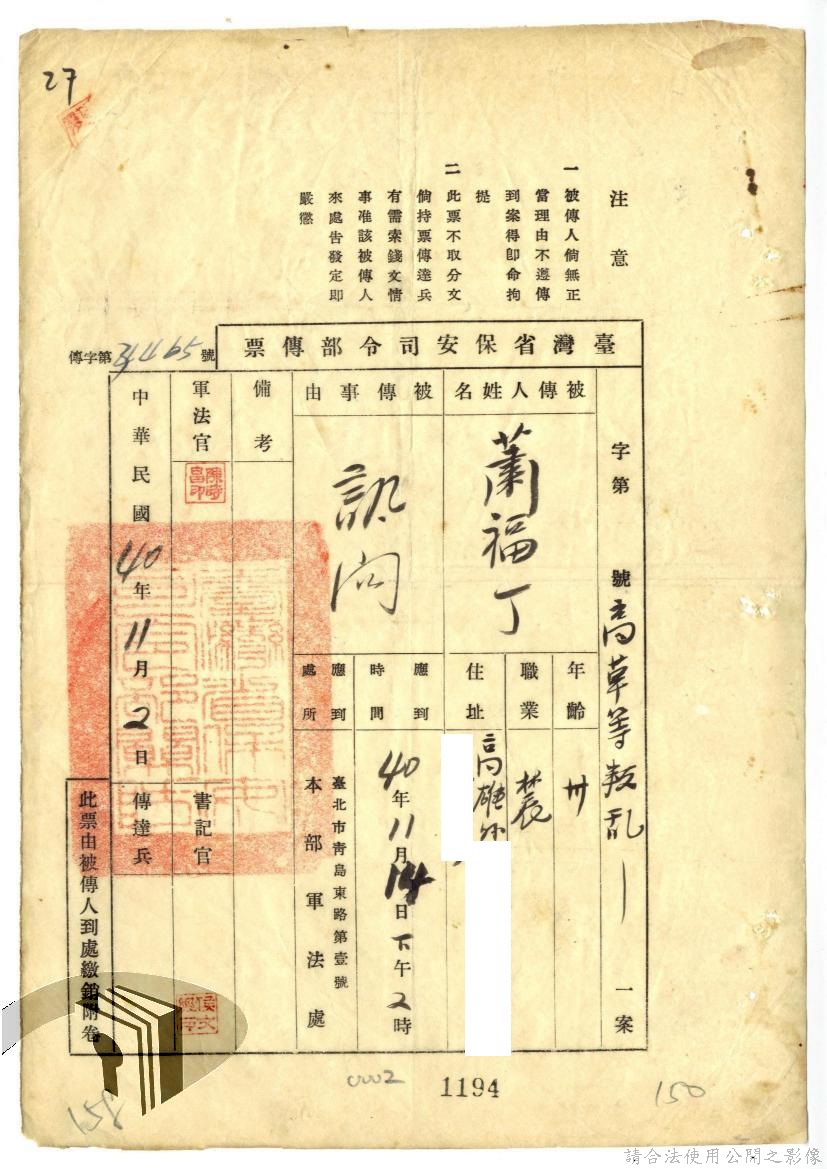 27
注意
一 被傳人倘無正
當理由不遵傳
到案得卽命拘
提
二 此票不取分文
倘持票傳達兵
有需索錢文情
事准該被傳人
來處告發定卽
嚴懲
臺灣省保安司令部傳票
傳字第 號
字第 號 高草等叛乱 一案
被傳人姓名
蕭福丁
年齡
卅
職業
農
住址
高雄
被傳事由
訊问
應到時間
40年11月14日下午2時
應到處所
臺北市靑島東路第壹號
本部軍法處
備考
軍法官
書記官
中華民國40年11月2日
傳達兵
此票由被傳人到處繳銷附卷
0002
1194
150
158
請合法使用公開之影像